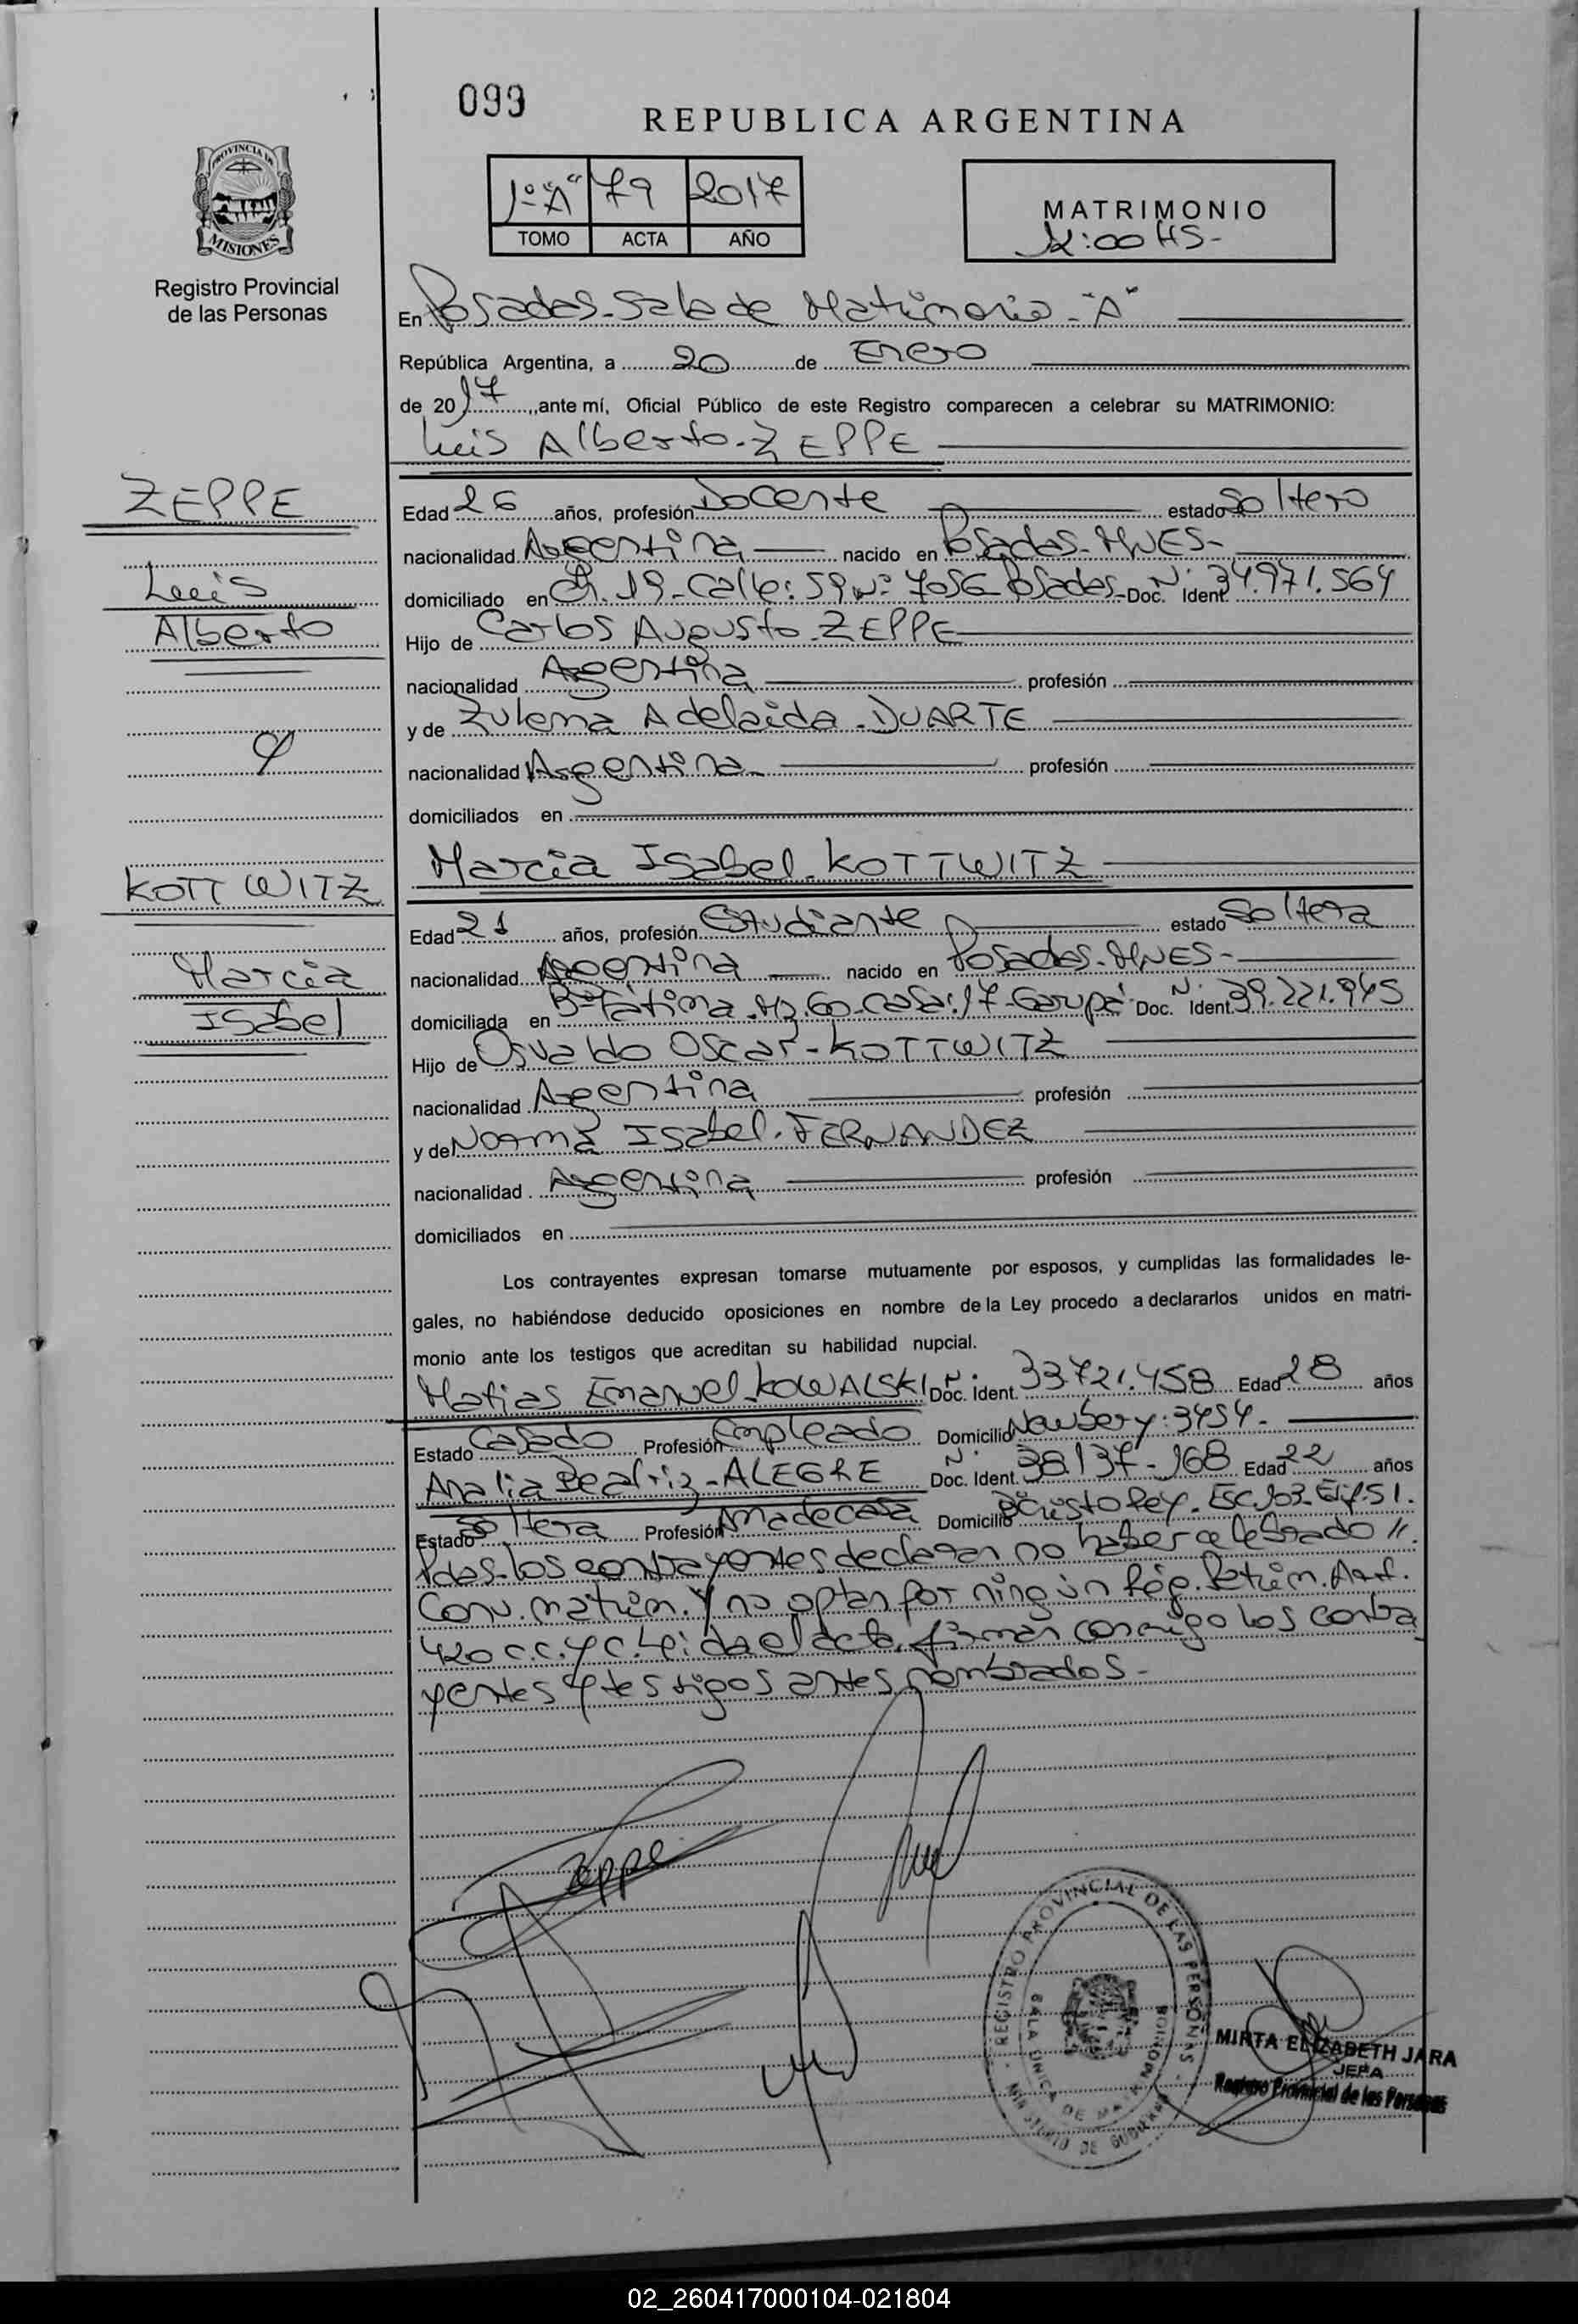 099
REPUBLICA ARGENTINA
1º "A" 79 2017
TOMO ACTA AÑO
MATRIMONIO
12:00 HS-
PROVINCIA DE
MISIONES
Registro Provincial
de las Personas
En Posadas-Sala de Matrimonio-"A"
República Argentina, a 20 de Enero
de 2017, ante mí, Oficial Público de este Registro comparecen a celebrar su MATRIMONIO:
Luis Alberto-ZEPPE
ZEPPE
Luis
Alberto
y
KOTTWITZ
Marcia
Isabel
Edad 26 años, profesión Docente estado Soltero
nacionalidad Argentina nacido en Posadas-MNES-
domiciliado en Ch. 19-Calle: 59 Nº 7056-Posadas-Doc. Ident. Nº 34.971.564
Hijo de Carlos Augusto-ZEPPE
nacionalidad Argentina profesión
y de Zulema Adelaida-DUARTE
nacionalidad Argentina profesión
domiciliados en
Marcia Isabel-KOTTWITZ
Edad 21 años, profesión Estudiante estado Soltera
nacionalidad Argentina nacido en Posadas-MNES-
domiciliada en Bº Fátima-Mz. 60-casa:17-Garupá- Doc. Ident. Nº 39.221.945
Hijo de Osvaldo Oscar-KOTTWITZ
nacionalidad Argentina profesión
y de Norma Isabel-FERNANDEZ
nacionalidad Argentina profesión
domiciliados en
Los contrayentes expresan tomarse mutuamente por esposos, y cumplidas las formalidades le-
gales, no habiéndose deducido oposiciones en nombre de la Ley procedo a declararlos unidos en matri-
monio ante los testigos que acreditan su habilidad nupcial.
Matias Emanuel-KOWALSKI Doc. Ident. Nº 33.721.458 Edad 28 años
Estado Casado Profesión Empleado Domicilio Newbery:3454-
Analia Beatriz-ALEGRE Doc. Ident. Nº 38.137.168 Edad 22 años
Estado Soltera Profesión Ama de casa Domicilio Bº Cristo Rey-Esc.103-Edif.51.
Pdas-los contrayentes declaran no haber celebrado //
Conv. matrim. Y no optan por ningún Rég. Patrim. Art.
420 C.C. y C. Leida el acta, firman conmigo los contra
yentes y testigos antes nombrados-
Zeppe
REGISTRO PROVINCIAL DE LAS PERSONAS
SALA UNICA DE MATRIMONIOS
MINISTERIO DE GOBIERNO
MIRTA ELIZABETH JARA
JEFA
Registro Provincial de las Personas
02_260417000104-021804